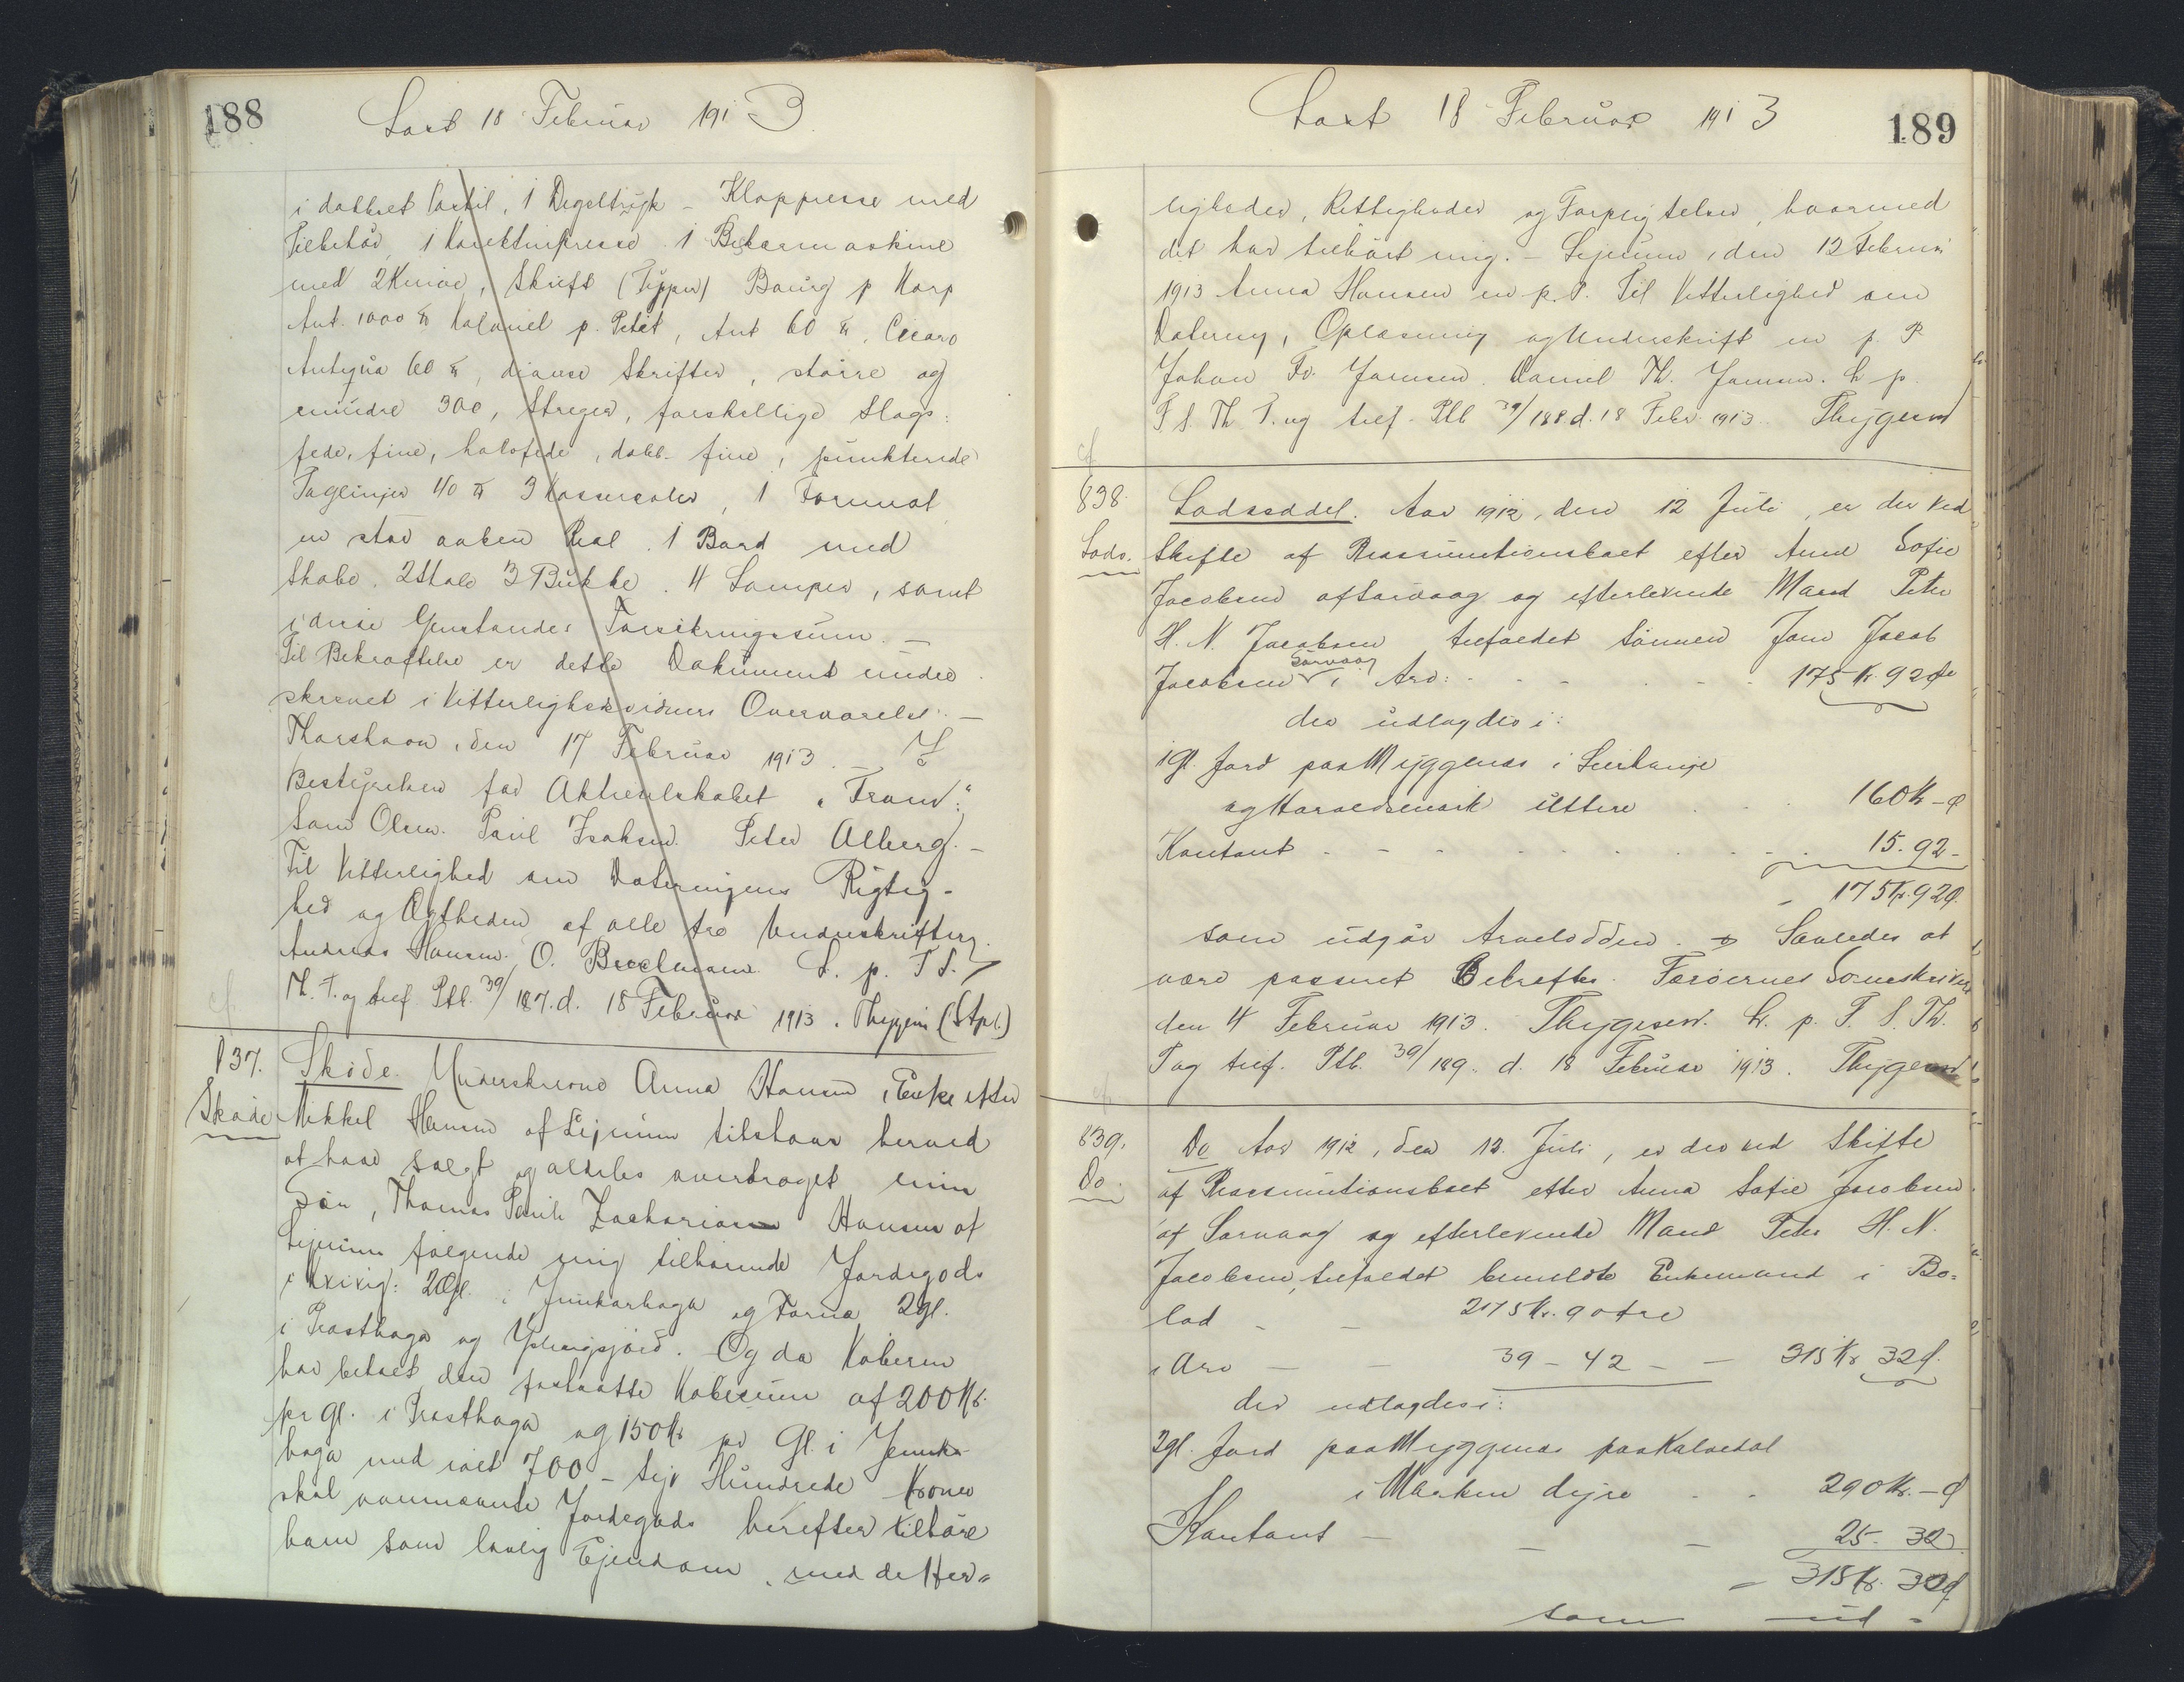 188
Læst 18 Februar 1913.
i dobbelt Pastil, 1 Degeltryk - Klappresse med
Tilbehør, 1 Korekturpresse. 1 maskine
med 2 Knive, Skrift (Typer) Bourg p Korp
Ant. 1000 ℔ Kolonel p. Petit, Ant 60 ℔, Cicero
Antiqua 60 ℔, diverse Skrifter, større og
mindre 300, Streger, forskellige Slags:
fede, fine, halvfede, dobb. fine, punkterede
Taglinjer 40 ℔ 3 Kassereoler, 1 Format
en stor aaben Reol. 1 Bord med
Skabe. 2 Stole 3 Bukke. 4 Lamper, samt
i disse Genstandes Forsikringssum. —
Til Bekræftelse er dette Dokument under-
skrevet i Vitterlighedsvidners Overværelse. —
Thorshavn, den 17 Februar 1913. —
Bestyrelsen for Aktieselskabet "Fram":
Sam Olsen. Poul Isaksen. Peter Alberg. —
Til Vitterlighed om Dateringens Rigtig-
hed og Ægtheden af alle tre Underskrifter.
Andreas Hansen. O. L. p. F S.
Th. T. og tref. Ptb. 39/187. d. 18 Februar 1913. Thygesen (Stpl.)
cf
837.
Skøde
Skøde. Underskrevne Anna Hansen, Enke efter
Mikkel Hansen af Lejnum tilstaar herved
at have solgt og aldeles overdraget min
Søn, Thomas Poul Zacharias Hansen af
Lejnum følgende mig tilhørende Jordegods
i Kvivig: 2 Gl. i Junkarhaga og Forna 2 gl.
i Prosthaga og . Og da Køberen
har betalt den fastsatte Købesum af 200 Kr.
pr Gl. i Prosthaga og 150 Kr pr Gl. i Junka-
haga med ialt 700 - syv Hundrede Kroner
skal ovennævnte Jordegods herefter tilhøre
ham som lovlig Ejendom, med de Her-
189
Læst 18 Februar 1913
ligheder, Rettigheder og Forpligtelser, hvormed
det har tilhørt mig. — Lejnum, den 12 Februar
1913 Anna Hansen m. p. P. Til Vitterlighed om
Datering, Oplæsning og Underskrift m p. P
Johan Fr. Joensen. Daniel Th. Joensen. L. p.
F S. Th T. og tref. Ptb 39/188 d. 18 Febr. 1913. Thygesen
cf
838.
Lods.
Lodseddel. Aar 1912, den 12 Juli, er der ved
Skifte af Reassumtionsboet efter Anna Sofie
Jacobsen af Sørvaag og efterlevende Mand Peter
H. N. Jacobsen tilfaldet Sønnen Jens Jacob
Sørvaag
Jacobsen i Arv: - - - - - 175 Kr. 92 Øre
der udlagdes i:
1 gl. Jord paa Myggenæs i
og Haraldsmørk uttere - - 160 Kr - Ø
Kontant - - - - - - - 15. 92 -
- 175 Kr. 92 Ø.
som udgør Arvelodden. Saaledes at
være passeret Bekræftes. Færøernes Sorenskriveri
den 4 Februar 1913. Thygesen. L. p. F. S. Th.
T og tref. Ptb. 39/189. d. 18 Februar 1913. Thygesen
cf
839.
Do.
Do Aar 1912, den 12. Juli, er der ved Skifte
af Reassumtionsboet efter Anna Sofie Jacobsen
af Sørvaag og efterlevende Mand Peter H. N.
Jacobsen, tilfaldet bemeldte Enkemand i Bo-
lod - - 275 Kr. 90 Øre
i Arv - - 39 - 42 - - 315 Kr 32 Ø.
der udlagdes i:
2 gl. Jord paa Myggenæs paa Kalvedal
i Marken dyre - - 290 Kr. - Ø
Kontant - - - 25. 32
- 315 Kr. 32 Ø
som ud-